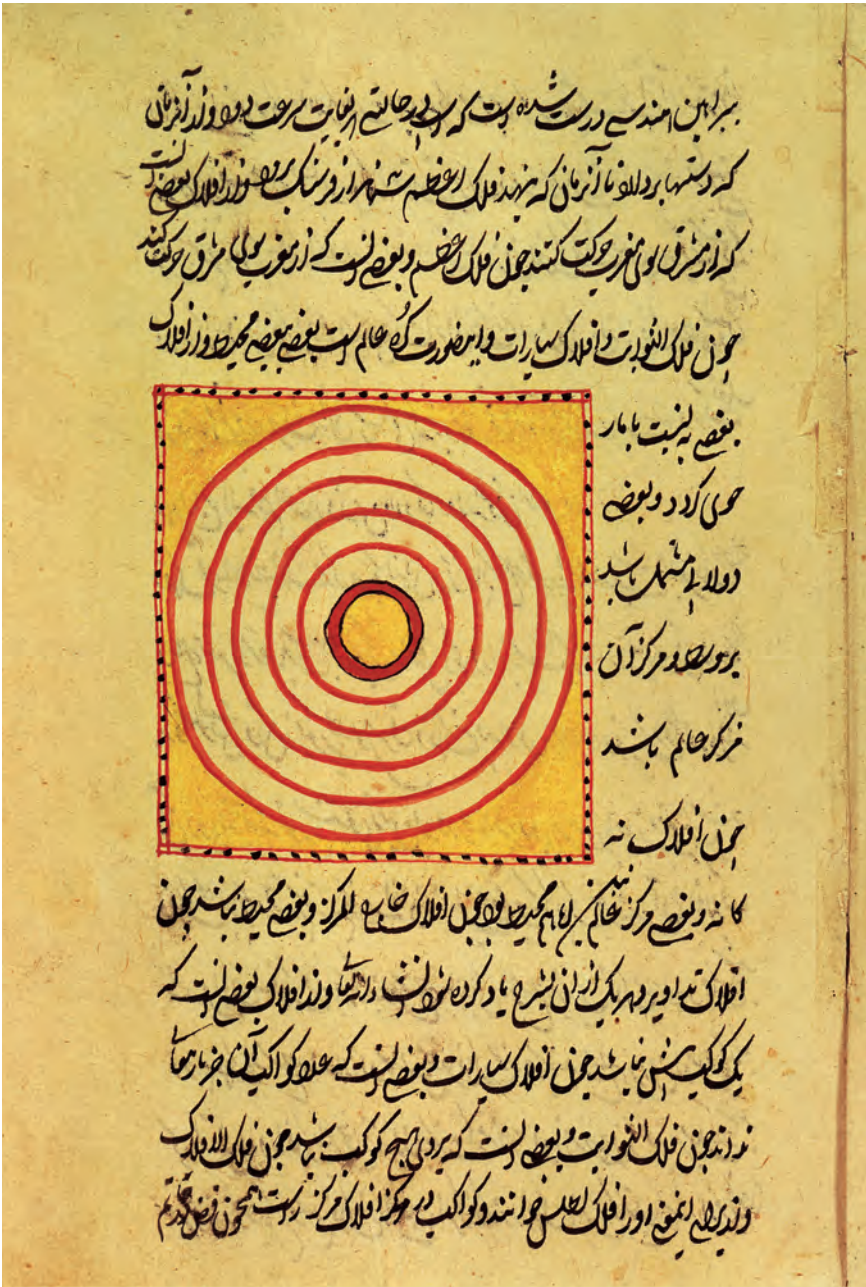 ببراهین هندسی درست شده است که اسبی در حالتی از غایت سرعت دود و از آن زمان
که دستها بردارد تا آن زمان که بنهد فلک اعظم هزار فرسنگ برود و از افلاک بعضی است
که از مشرق سوی مغرب حرکت کنند چون فلک اعظم و بعضی است که از مغرب سوی مشرق حرکت کند
چون فلک الثوابت و افلاک سیارات و این صورت کره عالم است بعضی ببعضی محیط و از افلاک
بعضی به نسبت با ما
حوی کردد و بعضی
دولابی باشد
و مرکز آن
مرکز عالم باشد
چون افلاک نه
کانه و بعضی مرکز عالم محیط بود چون افلاک خارج المرکز و بعضی محیط نباشد چون
افلاک تداویر و هر یک از آن بشرح یاد کرده شود انشاء الله تعا و از افلاک بعضی است که
یک کوکب بیش نباشد چون افلاک سیارات و بعضی است که عدد کواکب آن جز باریتعا
نداند چون فلک الثوابت و بعضی است که بروی هیچ کوکب نباشد چون فلک الافلاک
و از برای این معنی او را فلک اطلس خوانند و کواکب در افلاک مرکز است همچون